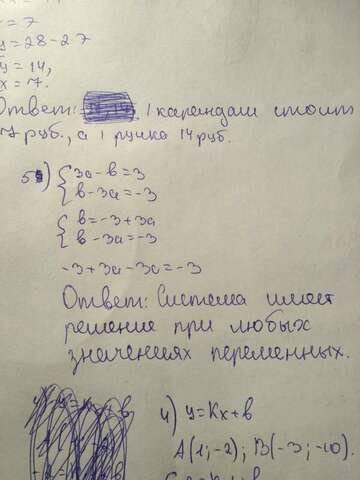 = 7
y = 28 - 27
y = 14,
x = 7.
Ответ: 1 карандаш стоит
7 руб., а 1 ручка 14 руб.
5) {3a - b = 3
{b - 3a = -3
{b = -3 + 3a
{b - 3a = -3
-3 + 3a - 3a = -3
Ответ: Система имеет
решение при любых
значениях переменных.
4) y = Kx + b
A(1; -2); B(-3; -10).